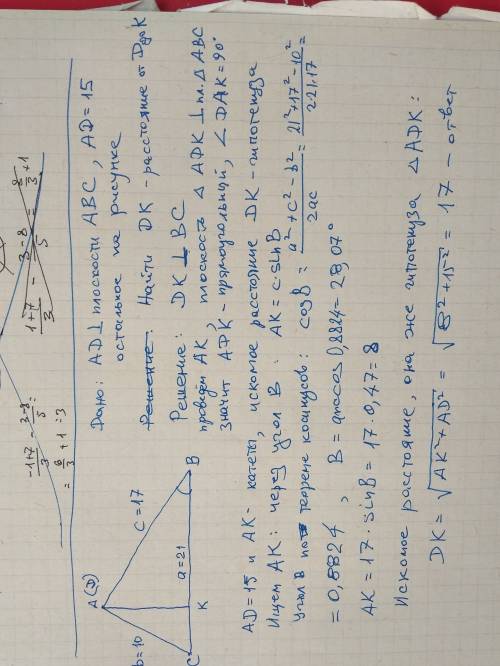 -1+7/3 - 3-8/5 =
= 6/3 + 1 = 3
1+7/3 - 3-8/5 = 8/3 + 1
Дано: AD⊥плоскости ABC, AD=15
остальное на рисунке
Решение: Найти DK - расстояние от D до K
Решение: DK ⊥ BC
проведём AK, плоскость △ADK ⊥ пл. △ABC
значит ADK - прямоугольный, ∠DAK=90°
A(D)
b=10
c=17
a=21
C
K
B
AD=15 и AK - катеты, искомое расстояние DK - гипотенуза
Ищем AK: через угол B: AK = c·sinB
Угол B по теореме косинусов: cosB = a²+c²-b²/2ac = 21²+17²-10²/2·21·17 =
= 0,8824, B = arccos 0,8824 = 28,07°
AK = 17·sinB = 17·0,47 = 8
Искомое расстояние, она же гипотенуза △ADK:
DK = √AK²+AD² = √8²+15² = 17 - ответ